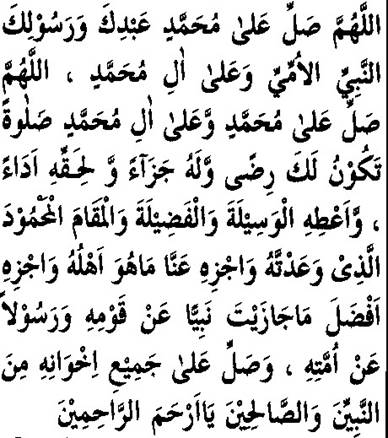 اَللّٰهُمَّ صَلِّ عَلىٰ مُحَمَّدٍ عَبْدِكَ وَرَسُوْلِكَ
النَّبِيِّ الْاُمِّيِّ وَعَلىٰ اٰلِ مُحَمَّدٍ ، اَللّٰهُمَّ
صَلِّ عَلىٰ مُحَمَّدٍ وَّعَلىٰ اٰلِ مُحَمَّدٍ صَلٰوةً
تَكُوْنُ لَكَ رِضًى وَّلَهٗ جَزَآءً وَّ لِحَقِّهٖ اَدَاءً
، وَّاَعْطِهِ الْوَسِيْلَةَ وَالْفَضِيْلَةَ وَالْمَقَامَ الْمَحْمُوْدَ
الَّذِىْ وَعَدْتَّهٗ وَاجْزِهٖ عَنَّا مَاهُوَ اَهْلُهٗ وَاجْزِهٖ
اَفْضَلَ مَاجَازَيْتَ نَبِيًّا عَنْ قَوْمِهٖ وَرَسُوْلاً
عَنْ اُمَّتِهٖ ، وَصَلِّ عَلىٰ جَمِيْعِ اِخْوَانِهٖ مِنَ
النَّبِيّٖنَ وَالصَّالِحِيْنَ يَااَرْحَمَ الرَّاحِمِيْنَ